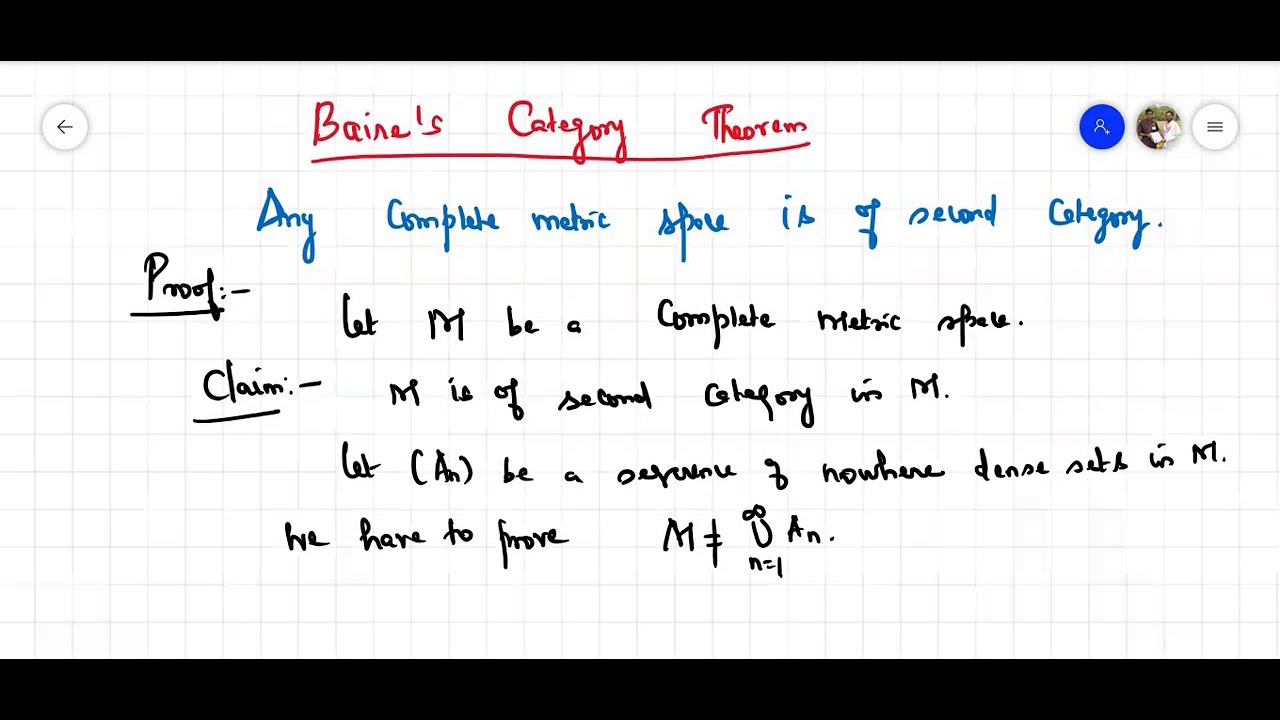 Baire's Category Theorem
Any Complete metric space is of second Category.
Proof:-
Let M be a Complete Metric space.
Claim:- M is of second Category in M.
Let (An) be a sequence of nowhere dense sets in M.
We have to prove M ≠ ∞∪n=1 An.